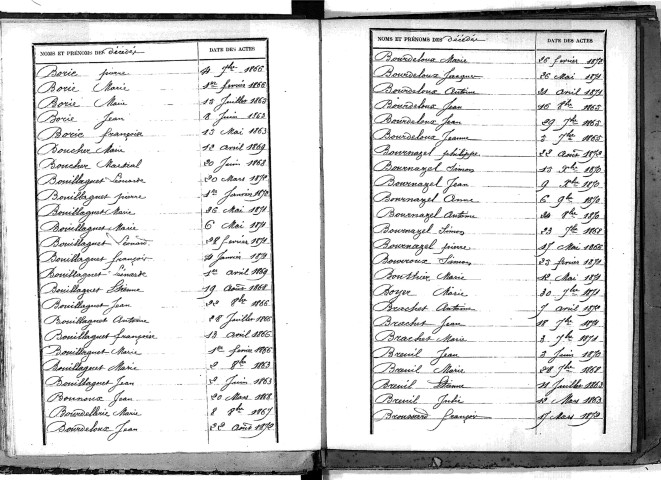 NOMS ET PRÉNOMS DES décédés DATE DES ACTES
Borie pierre 4 7bre 1866
Borie Marie 1er fevrier 1866
Borie Marie 13 Juillet 1865
Borie Jean 8 Juin 1863
Borie françoise 13 Mai 1863
Boucher Marie 12 avril 1869
Boucher Martial 20 Juin 1868
Bouillaguet Léonarde 20 Mars 1870
Bouillaguet pierre 1er Janvier 1870
Bouillaguet Marie 26 Mai 1871
Bouillaguet Marie 6 Mai 1871
Bouillaguet Léonard 28 fevrier 1871
Bouillaguet françois 4 Janvier 1871
Bouillaguet Léonarde 1er avril 1869
Bouillaguet Etienne 19 aout 1868
Bouillaguet Jean 22 8bre 1866
Bouillaguet Antoine 28 Juillet 1866
Bouillaguet françoise 13 avril 1866
Bouillaguet Marie 1er fevrier 1866
Bouillaguet Marie 2 8bre 1863
Bouillaguet Jean 2 Juin 1863
Bounoux Jean 20 Mars 1868
Bourdellerie Marie 8 8bre 1867
Bourdeloux Jean 22 aout 1870
NOMS ET PRÉNOMS DES décédés DATE DES ACTES
Bourdeloux Marie 26 fevrier 1870
Bourdeloux Jacques 26 Mai 1871
Bourdeloux Antoine 21 avril 1871
Bourdeloux Jean 16 8bre 1865
Bourdeloux Jean 29 7bre 1865
Bourdeloux Jeanne 2 7bre 1865
Bournazel philippe 22 aout 1870
Bournazel Simon 13 Xbre 1870
Bournazel Jean 9 Xbre 1870
Bournazel Anne 6 9bre 1870
Bournazel Antoine 24 8bre 1870
Bournazel Simon 23 7bre 1868
Bournazel pierre 17 Mai 1866
Bouvroux Simon 23 fevrier 1871
Bouthier Marie 12 Mai 1871
Boyer Marie 30 9bre 1871
Brachet Antoine 7 avril 1870
Brachet Jean 18 7bre 1871
Brachet Marie 3 7bre 1871
Breuil Jean 2 Juin 1870
Breuil Marie 28 7bre 1868
Breuil Etienne 11 Juillet 1863
Breuil Julie 10 Mars 1863
Broussard françois 17 Mars 1870